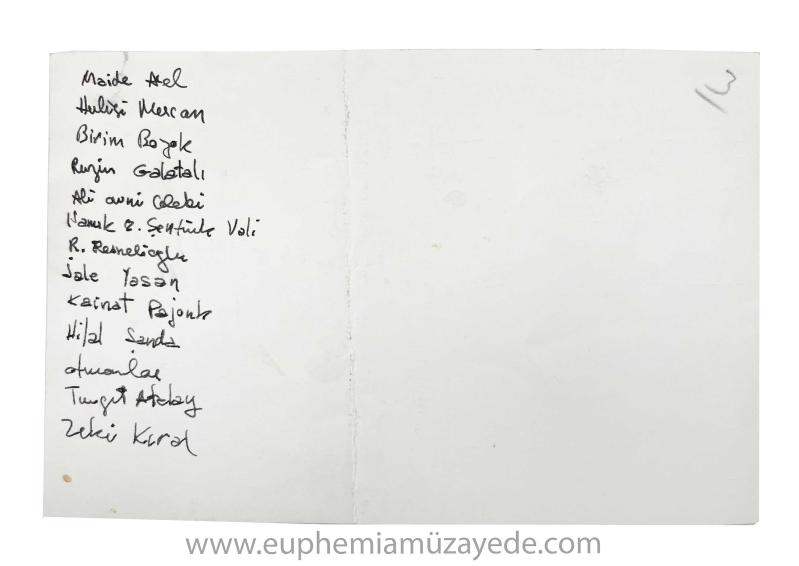 Maide Arel
Hulusi Mercan
Birim Bozok
Ruzin Galatalı
Ali avni Çelebi
Namık 2. Şentürk Vali
R. Resnelioğlu
Jale Yasan
Kainat Pajonk
Hilal Sanda
Turgut Atalay
Zeki Kıral
13
www.euphemiamüzayede.com